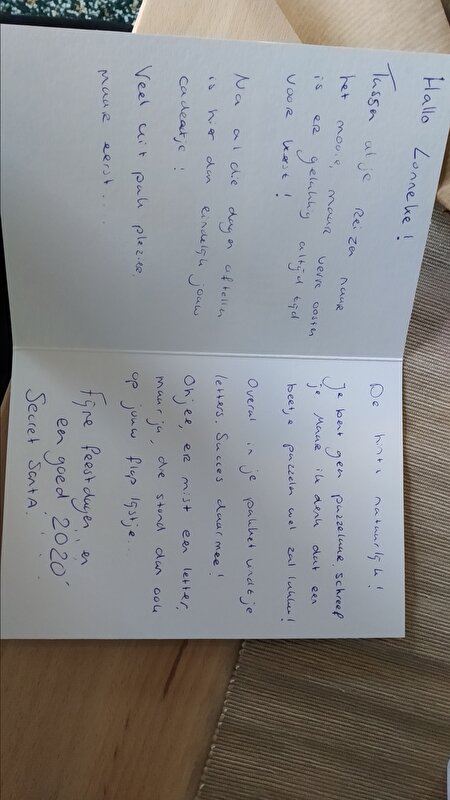 Hallo Lonneke!
Tussen al je reizen naar
het mooie, maar verre oosten
is er gelukkig altijd tijd
voor kerst!
Na al die dagen aftellen
is hier dan eindelijk jouw
cadeautje!
Veel uit pak plezier,
maar eerst....
De hints natuurlijk!
Je bent geen puzzelaar, schreef
je. Maar ik denk dat een
beetje puzzelen wel zal lukken!
Overal in je pakket vind je
letters. Succes daarmee!
Ohjee, er mist een letter,
maar ja, die stond dan ook
op jouw flop lijstje...
Fijne feestdagen en
een goed 2020!
Secret Santa.